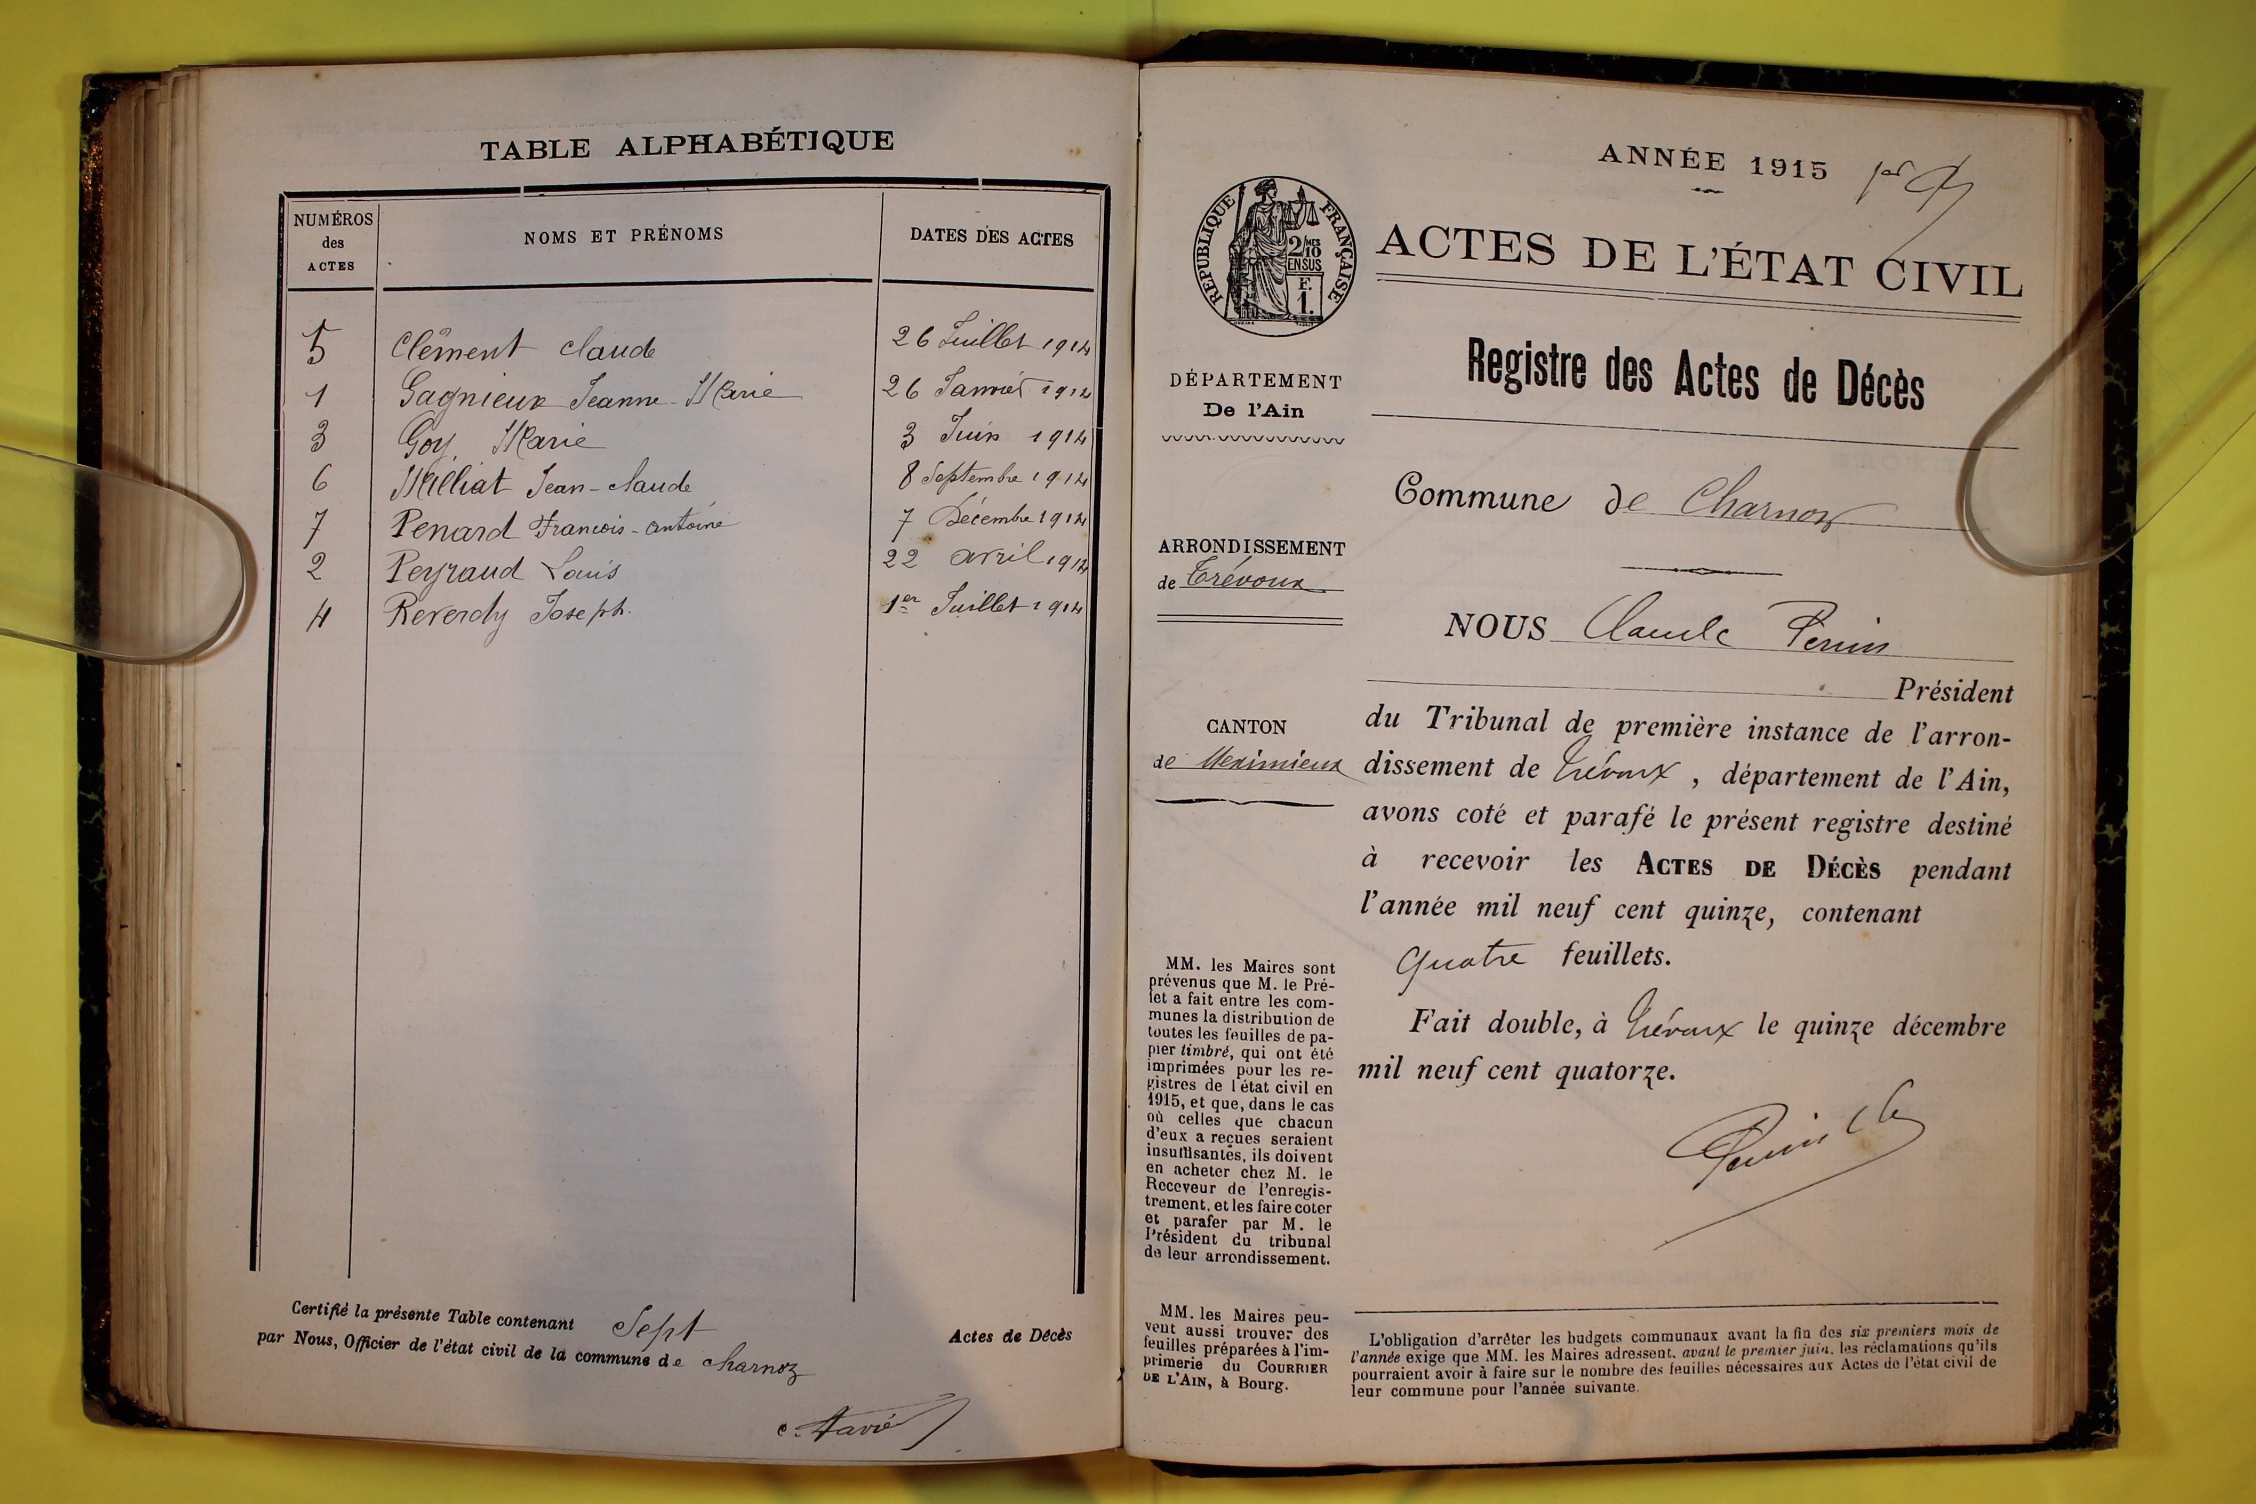 TABLE ALPHABÉTIQUE
NUMÉROS des ACTES
NOMS ET PRÉNOMS
DATES DES ACTES
5 Clément Claude 26 Juillet 1914
1 Gagnieux Jeanne-Marie 26 Janvier 1914
3 Goy Marie 3 Juin 1914
6 Milliat Jean-Claude 8 Septembre 1914
7 Penard Francois-Antoine 7 Décembre 1914
2 Peyraud Louis 22 avril 1914
4 Reverdy Joseph. 1er Juillet 1914
Certifié la présente Table contenant Sept Actes de Décès
par Nous, Officier de l'état civil de la commune de Charnoz
ANNÉE 1915
RÉPUBLIQUE FRANÇAISE
2/10 MES
EN SUS
F.
1.
ACTES DE L'ÉTAT CIVIL
Registre des Actes de Décès
DÉPARTEMENT
De l'Ain
ARRONDISSEMENT
de Trévoux
CANTON
de Meximieux
MM. les Maires sont
prévenus que M. le Pré-
fet a fait entre les com-
munes la distribution de
toutes les feuilles de pa-
pier timbré, qui ont été
imprimées pour les re-
gistres de l'état civil en
1915, et que, dans le cas
où celles que chacun
d'eux a reçues seraient
insuffisantes, ils doivent
en acheter chez M. le
Receveur de l'enregis-
trement, et les faire coter
et parafer par M. le
Président du tribunal
de leur arrondissement.
MM. les Maires peu-
vent aussi trouver des
feuilles préparées à l'im-
primerie du COURRIER
DE L'AIN, à Bourg.
Commune de Charnoz
NOUS Claude Perrin
Président
du Tribunal de première instance de l'arron-
dissement de Trévoux, département de l'Ain,
avons coté et parafé le présent registre destiné
à recevoir les ACTES DE DÉCÈS pendant
l'année mil neuf cent quinze, contenant
Quatre feuillets.
Fait double, à Trévoux le quinze décembre
mil neuf cent quatorze.
L'obligation d'arrêter les budgets communaux avant la fin des six premiers mois de
l'année exige que MM. les Maires adressent, avant le premier juin, les réclamations qu'ils
pourraient avoir à faire sur le nombre des feuilles nécessaires aux Actes de l'état civil de
leur commune pour l'année suivante.